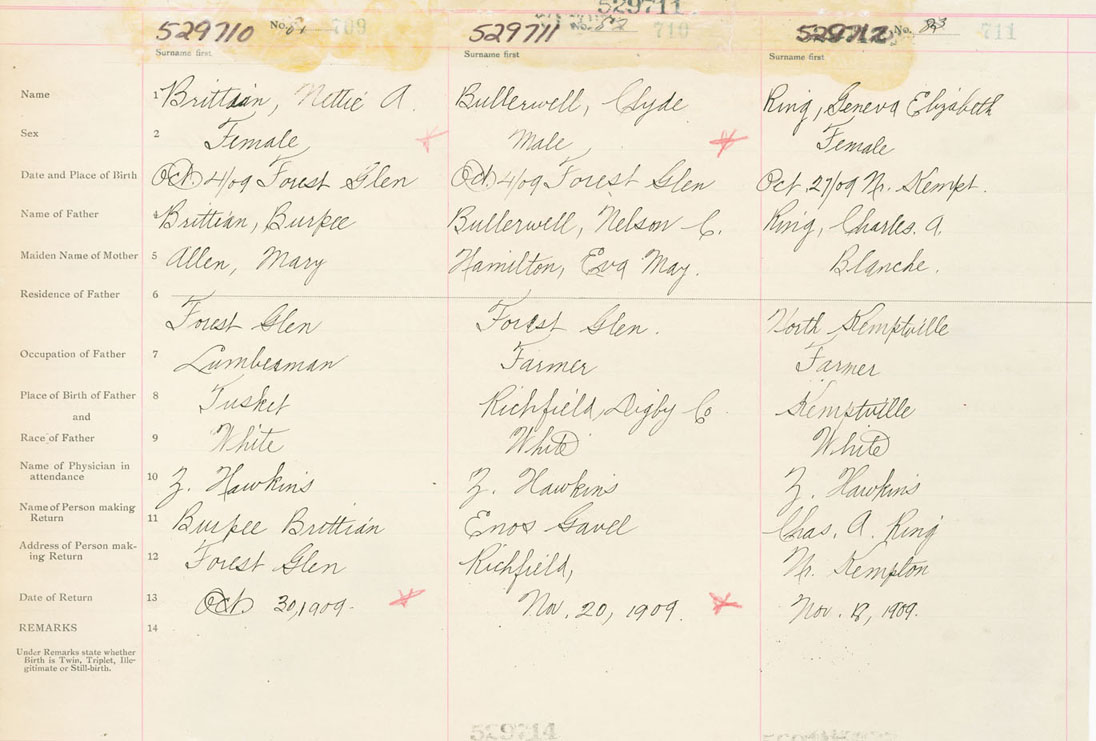 529711
529710 No. 81 709 529711 No. 82 710 529712 No. 83 711
Surname first Surname first Surname first
Name 1 Brittain, Nettie A. Bullerwell, Clyde Ring, Geneva Elizabeth
Sex 2 Female Male Female
Date and Place of Birth Oct. 4/09 Forest Glen Oct. 4/09 Forest Glen Oct. 27/09 N. Kempt.
Name of Father 4 Brittian, Burpee Bullerwell, Nelson C. Ring, Charles. A.
Maiden Name of Mother 5 Allen, Mary Hamilton, Eva May. Blanche.
Residence of Father 6
Forest Glen Forest Glen. North Kemptville
Occupation of Father 7 Lumberman Farmer Farmer
Place of Birth of Father 8 Tusket Richfield, Digby Co. Kemptville
and
Race of Father 9 White White White
Name of Physician in
attendance 10 Z. Hawkins Z. Hawkins Z. Hawkins
Name of Person making
Return 11 Burpee Brittian Enos Gavel Chas. A. Ring
Address of Person mak-
ing Return 12 Forest Glen Richfield, N. Kempton
Date of Return 13 Oct. 30, 1909. Nov. 20, 1909. Nov. 18, 1909.
REMARKS 14
Under Remarks state whether
Birth is Twin, Triplet, Ille-
gitimate or Still-birth.
529714